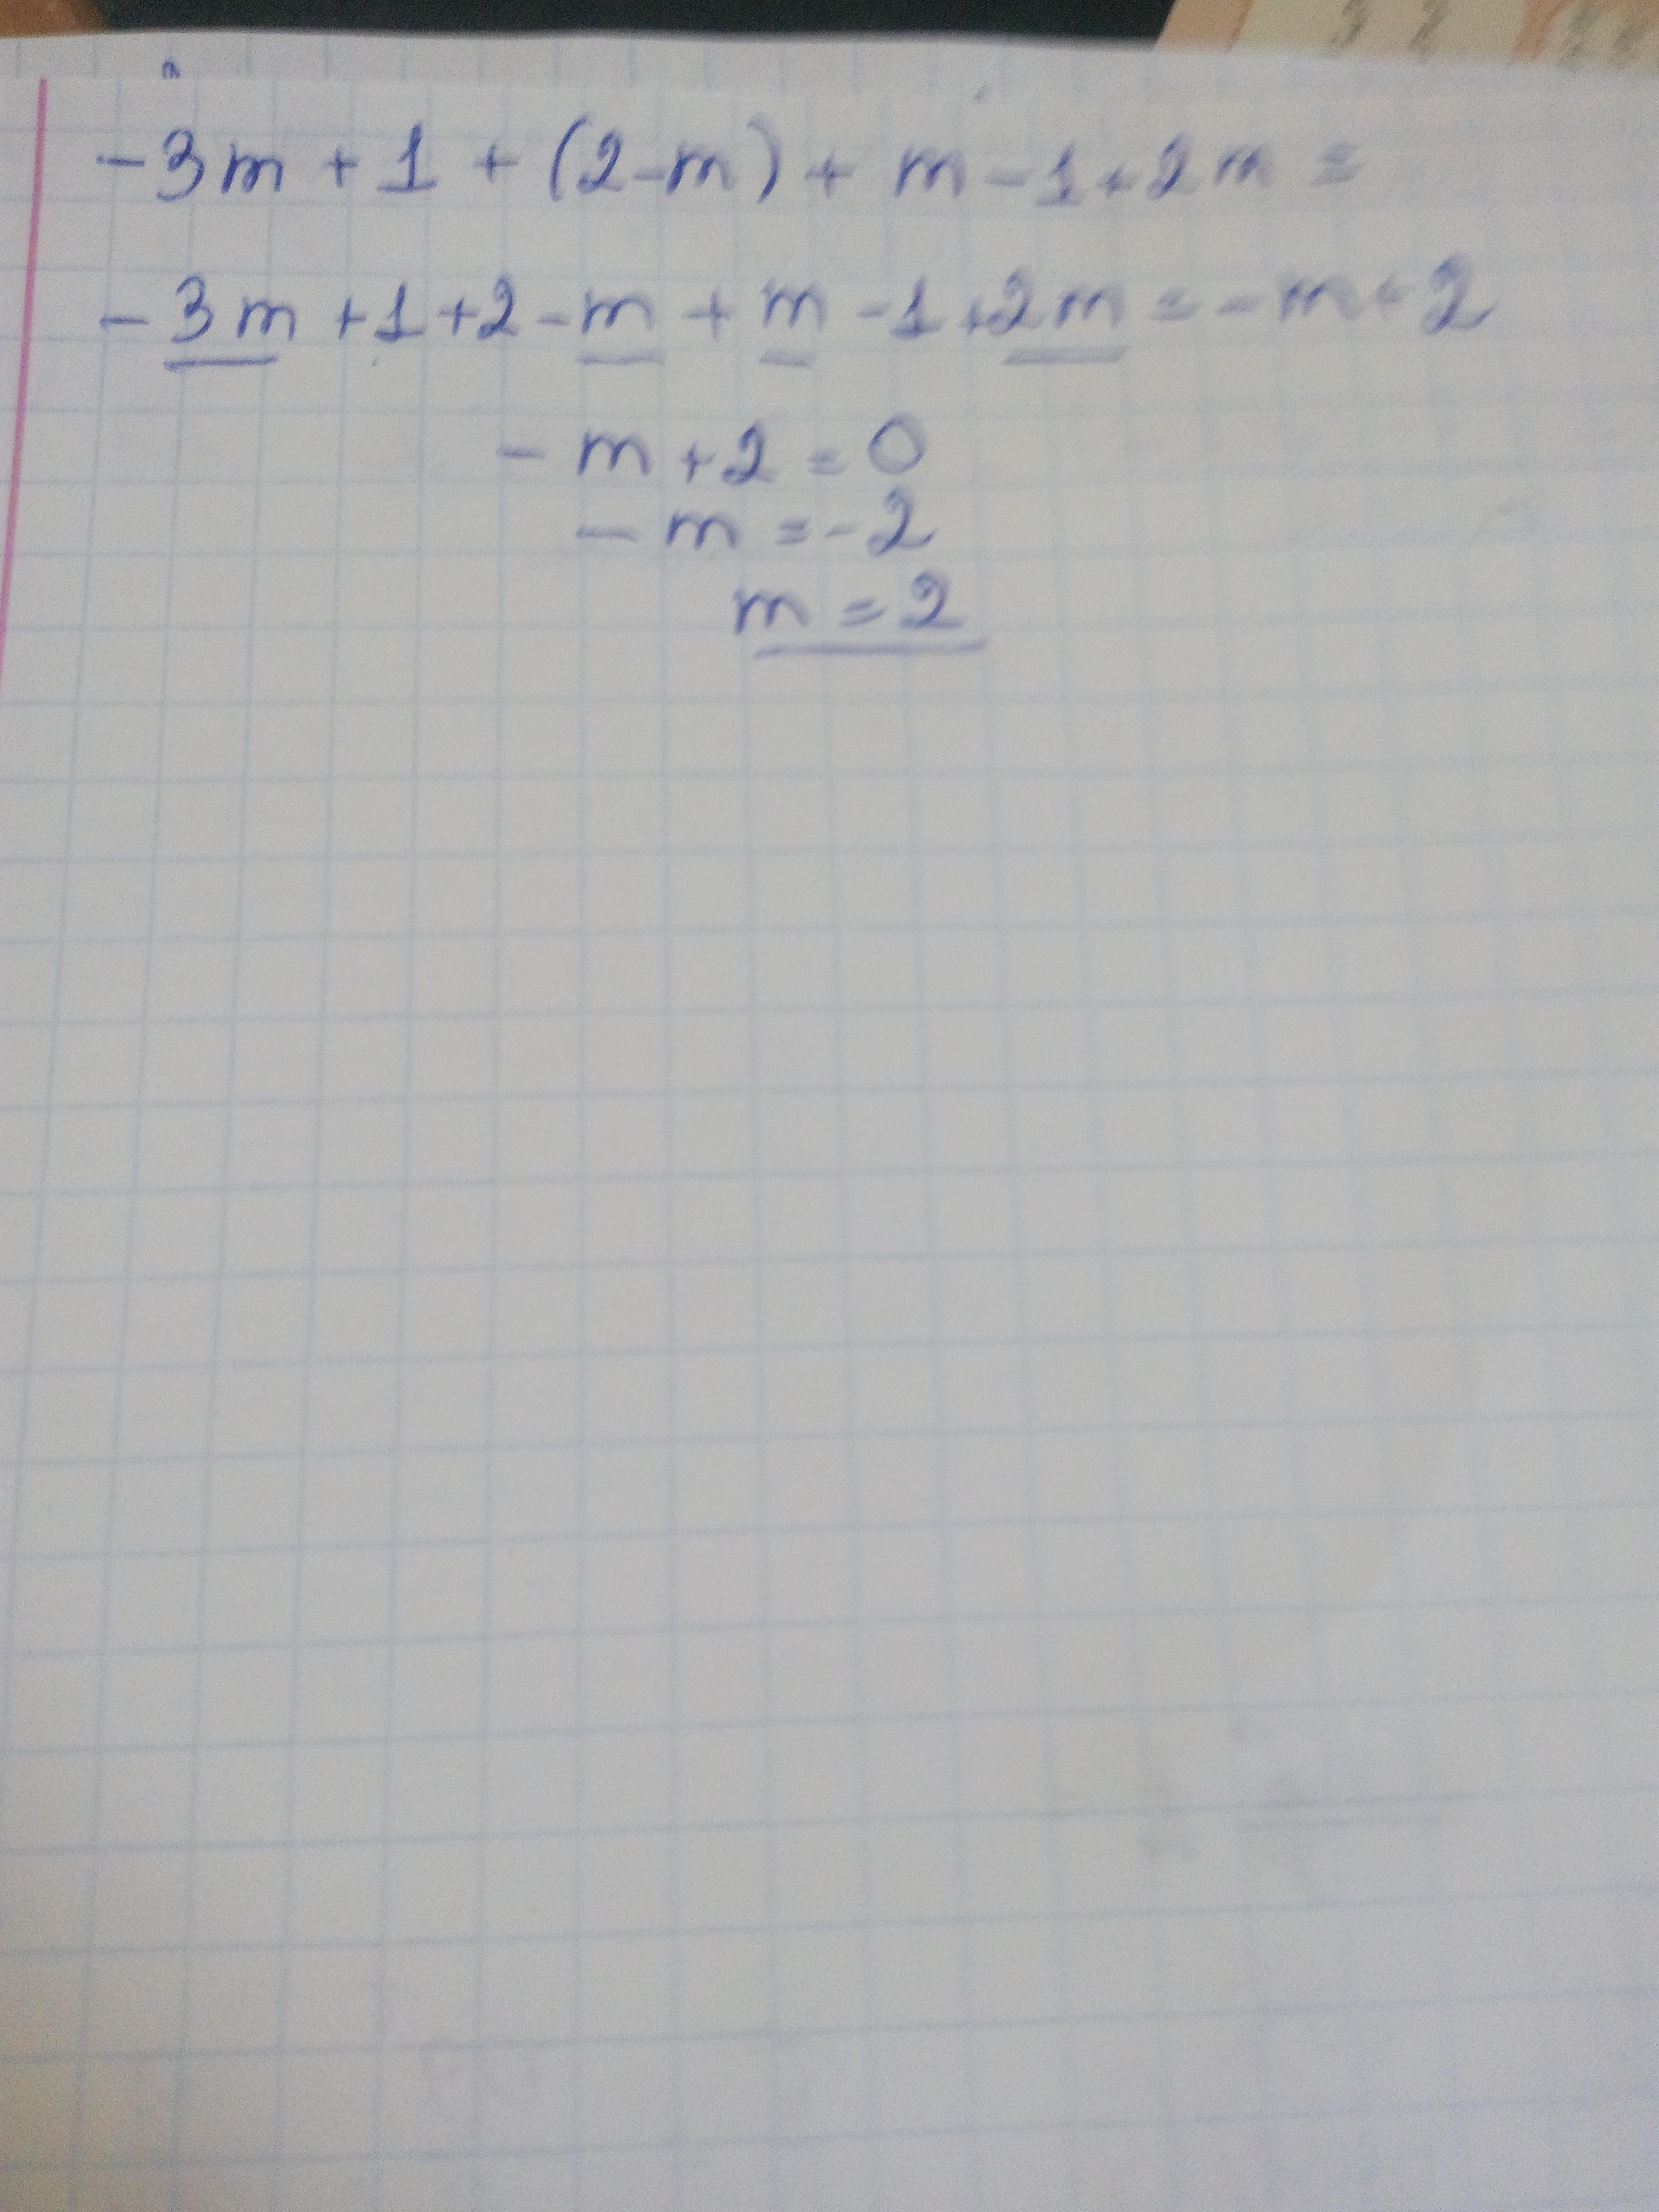 -3m + 1 + (2-m) + m - 1 + 2m =
-3m + 1 + 2 - m + m - 1 + 2m = -m + 2
-m + 2 = 0
-m = -2
m = 2